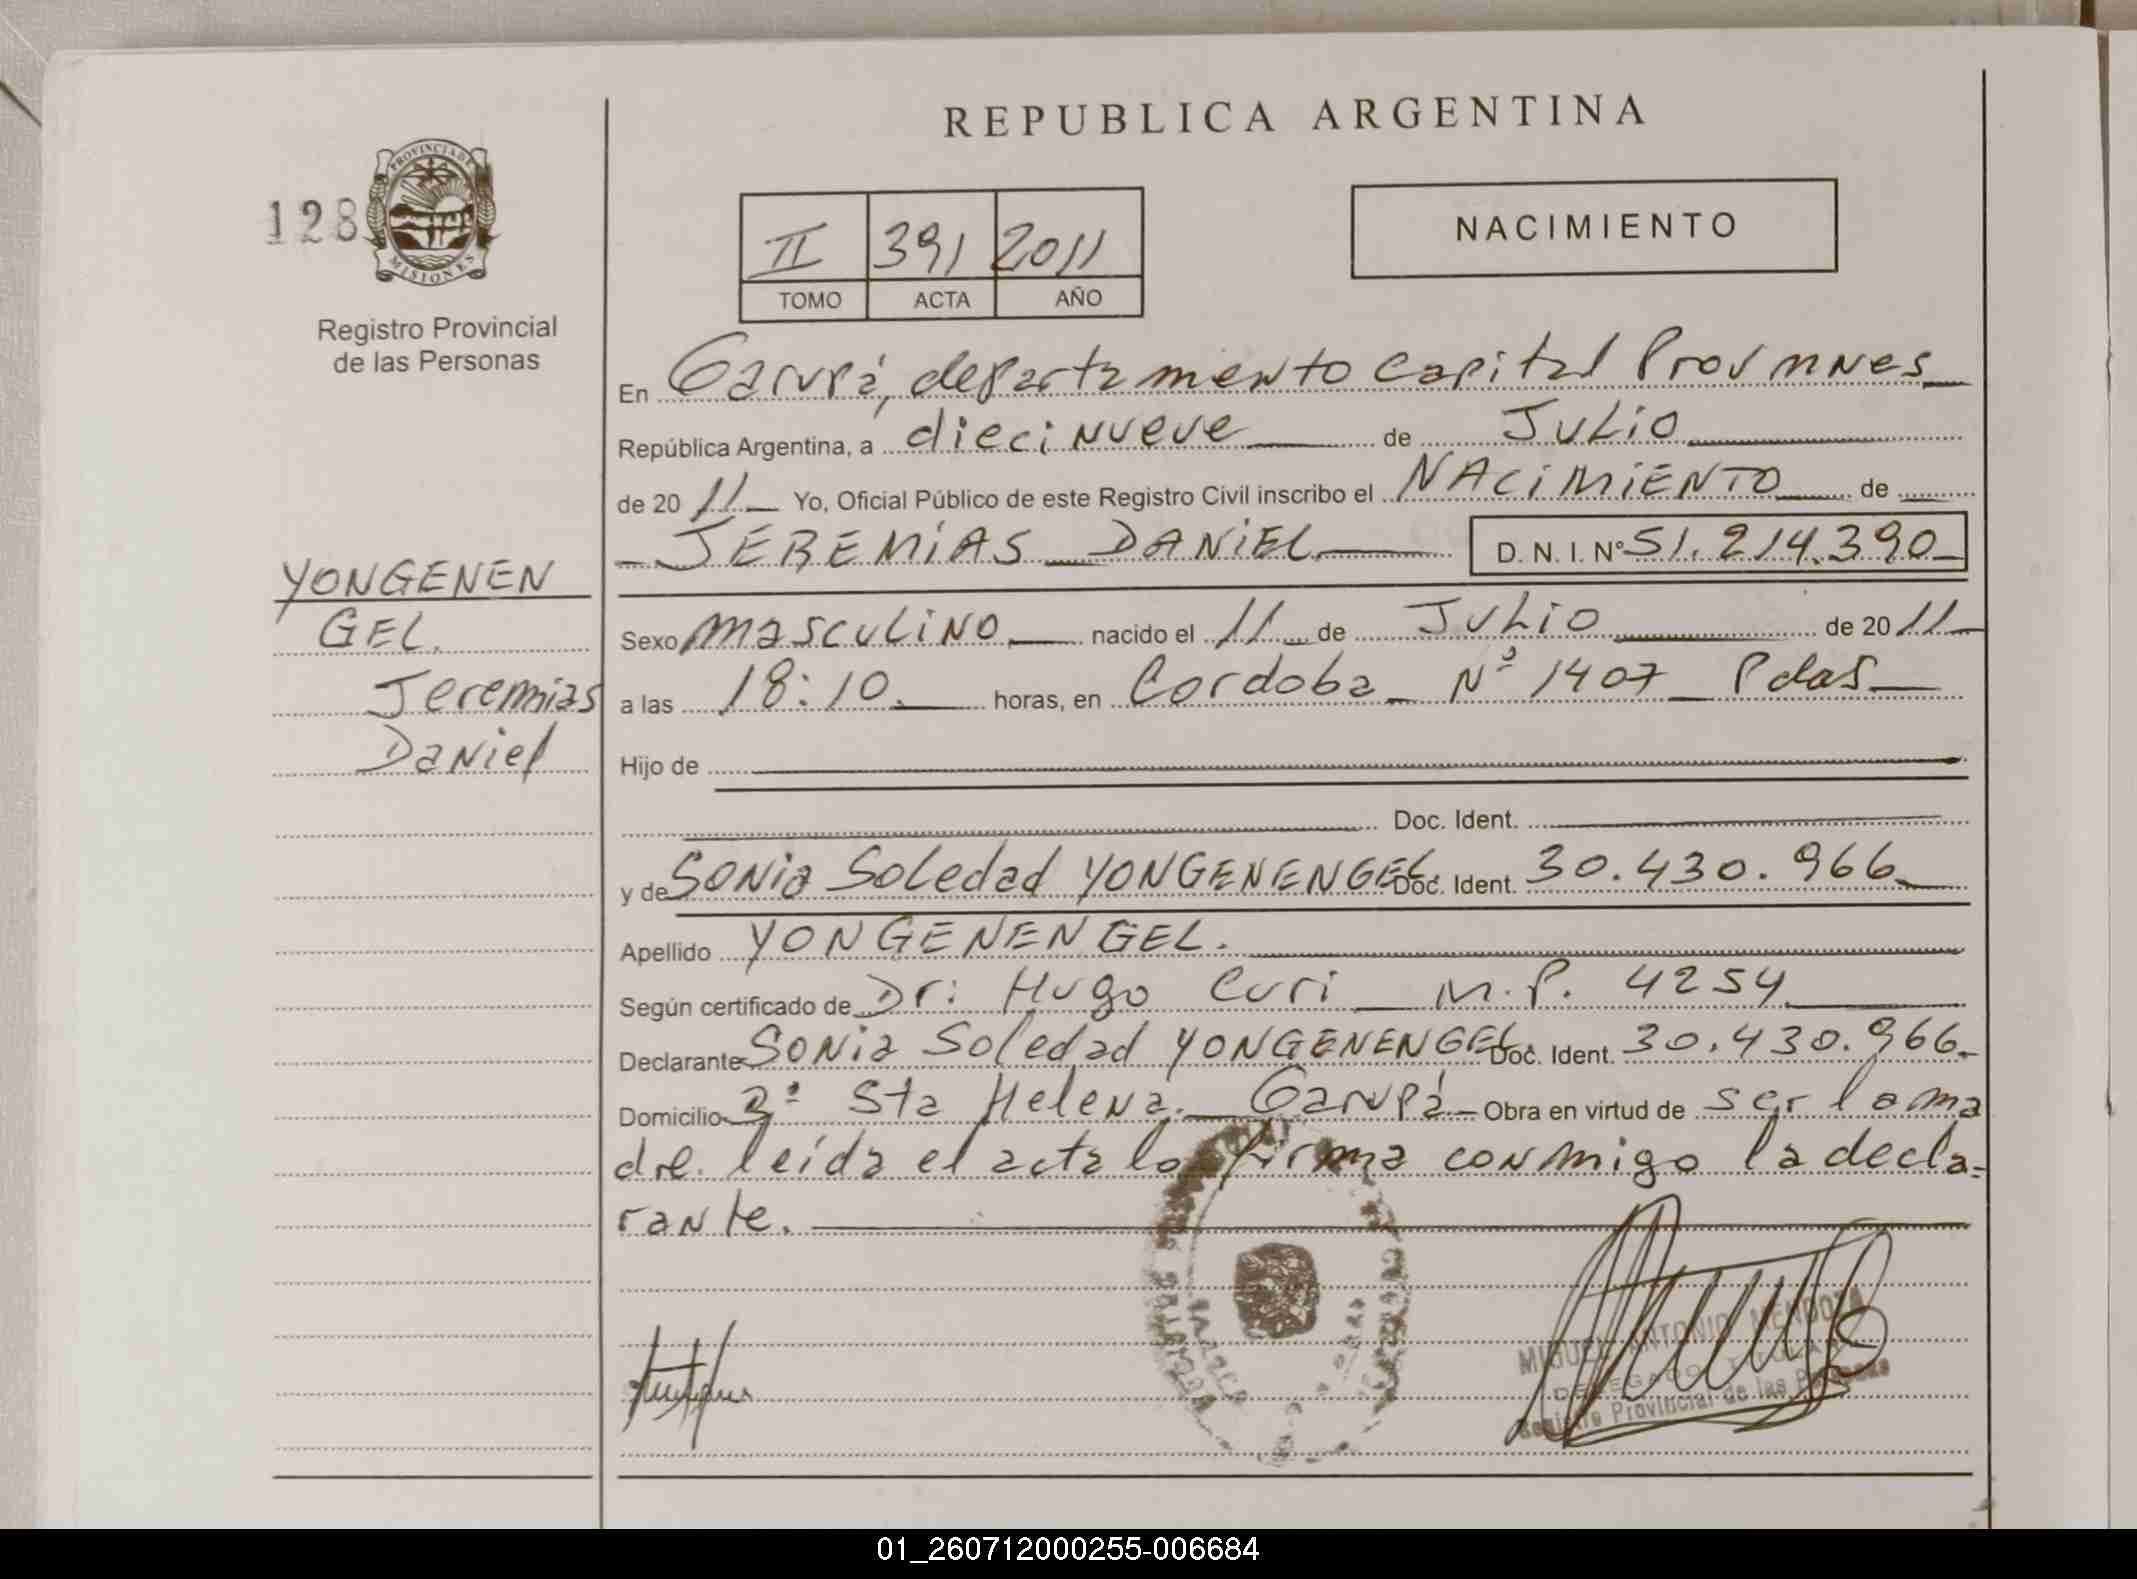 REPUBLICA ARGENTINA
128
PROVINCIA DE
MISIONES
Registro Provincial
de las Personas
II 391 2011
TOMO ACTA AÑO
NACIMIENTO
En Garupá, departamento Capital Prov Mnes
República Argentina, a diecinueve de Julio
de 2011 Yo, Oficial Público de este Registro Civil inscribo el NACIMIENTO de
JEREMÍAS DANIEL D. N. I. Nº 51.214.390
YONGENEN
GEL.
Jeremias
Daniel
Sexo masculino nacido el 11 de Julio de 2011
a las 18:10. horas, en Cordoba Nº 1407 Pdas
Hijo de
Doc. Ident.
y de Sonia Soledad YONGENENGEL Doc. Ident. 30.430.966
Apellido YONGENENGEL.
Según certificado de Dr: Hugo Curi M.P. 4254
Declarante Sonia Soledad YONGENENGEL Doc. Ident. 30.430.966
Domicilio Bº Sta Helena. Garupá Obra en virtud de ser la ma
dre. leída el acta la firma conmigo la decla-
rante.
MIGUEL ANTONIO MENDOZA
DELEGADO TITULAR
Registro Provincial de las Personas
01_260712000255-006684